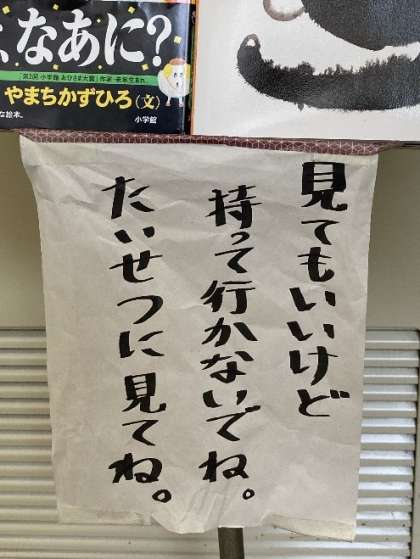 なあに?
「第3回 小学館 おひさま大賞」作家・
やまちかずひろ(文)
な絵本。
小学館
見てもいいけど
持って行かないでね。
たいせつに見てね。